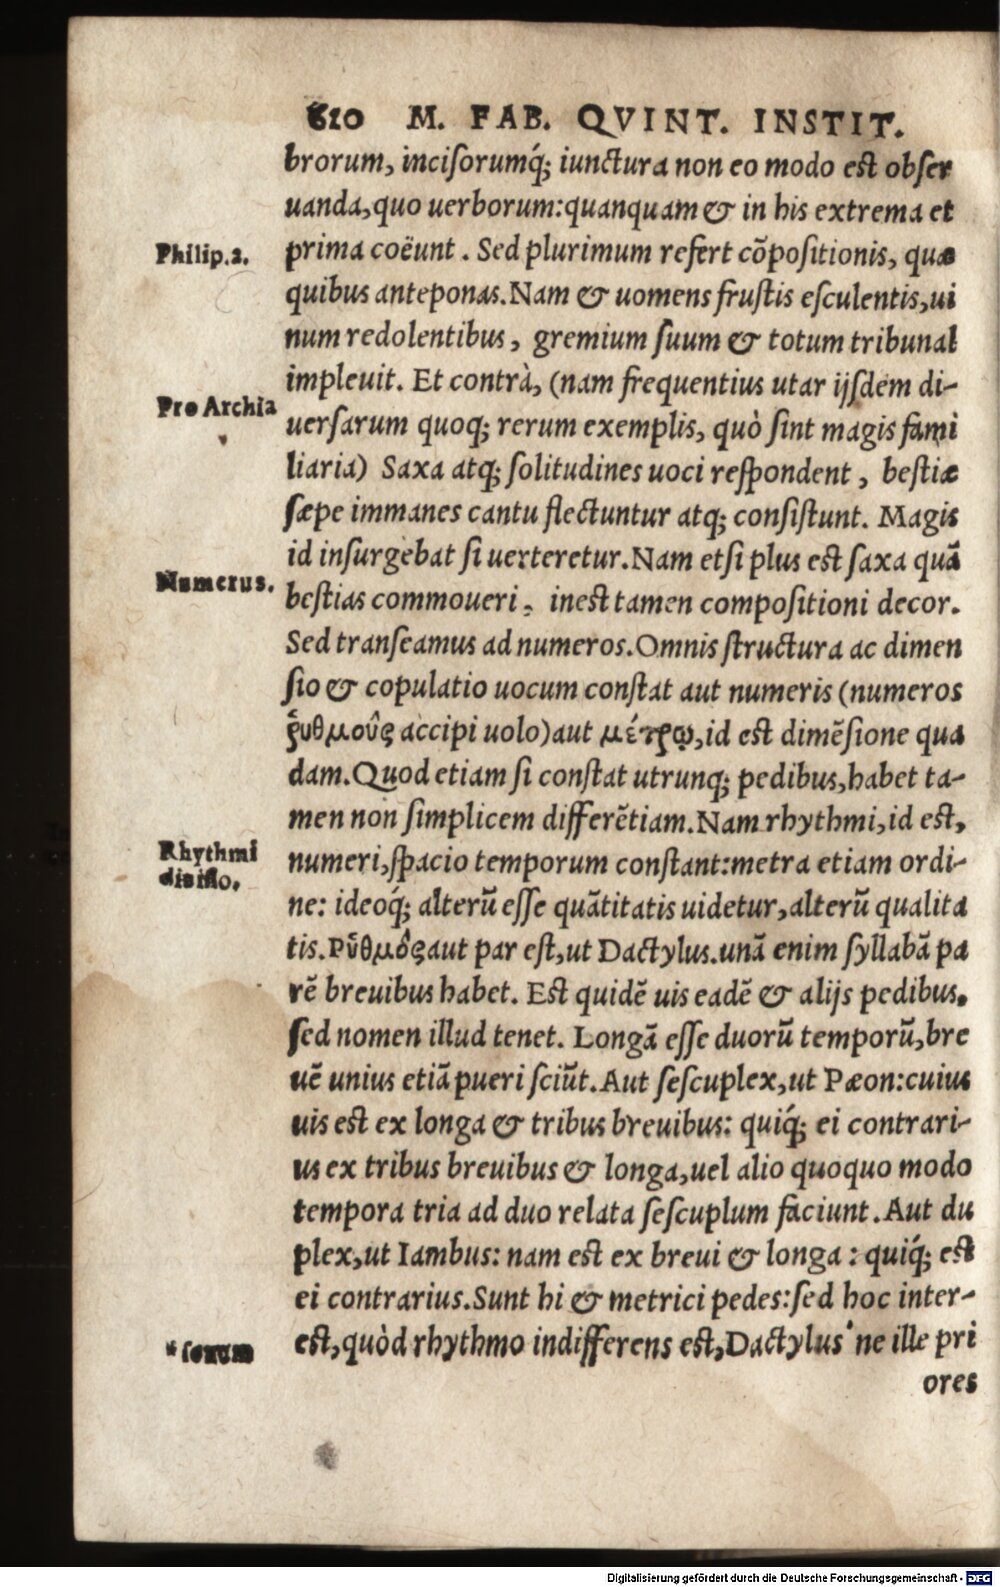 610 M. FAB. QVINT. INSTIT.
brorum, inciſorumq́; iunctura non eo modo eſt obſer
uanda,quo uerborum:quanquam & in his extrema et
Philip.2. prima coëunt . Sed plurimum refert cōpoſitionis, quæ
quibus anteponas.Nam & uomens fruſtis eſculentis,ui
num redolentibus, gremium ſuum & totum tribunal
impleuit. Et contrà, (nam frequentius utar ijſdem di-
Pro Archia uerſarum quoq; rerum exemplis, quò ſint magis fami
liaria) Saxa atq; ſolitudines uoci reſpondent, beſtiæ
ſæpe immanes cantu flectuntur atq; conſiſtunt. Magis
id inſurgebat ſi uerteretur.Nam etſi plus eſt ſaxa quā
Numerus. beſtias commoueri, ineſt tamen compoſitioni decor.
Sed tranſeamus ad numeros.Omnis ſtructura ac dimen
ſio & copulatio uocum conſtat aut numeris (numeros
ῥυθμοὺς accipi uolo)aut μέτρῳ,id eſt dimēſione qua
dam.Quod etiam ſi conſtat utrunq; pedibus,habet ta-
men non ſimplicem differētiam.Nam rhythmi,id eſt,
Rhythmi numeri,ſpacio temporum conſtant:metra etiam ordi-
diuiſio. ne: ideoq́; alterū eſſe quātitatis uidetur,alterū qualita
tis.Ρὑθμὸς aut par eſt,ut Dactylus.unā enim ſyllabā pa
rē breuibus habet. Eſt quidē uis eadē & alijs pedibus.
ſed nomen illud tenet. Longā eſſe duorū temporū,bre
uē unius etiā pueri ſciūt.Aut ſeſcuplex,ut Pæon:cuius
uis eſt ex longa & tribus breuibus: quiq́; ei contrari-
us ex tribus breuibus & longa,uel alio quoquo modo
tempora tria ad duo relata ſeſcuplum faciunt.Aut du
plex,ut Iambus: nam eſt ex breui & longa : quiq́; eſt
ei contrarius.Sunt hi & metrici pedes:ſed hoc inter-
eſt,quòd rhythmo indifferens eſt,Dactylus ne ille pri
ores
Digitalisierung gefördert durch die Deutsche Forschungsgemeinschaft - DFG